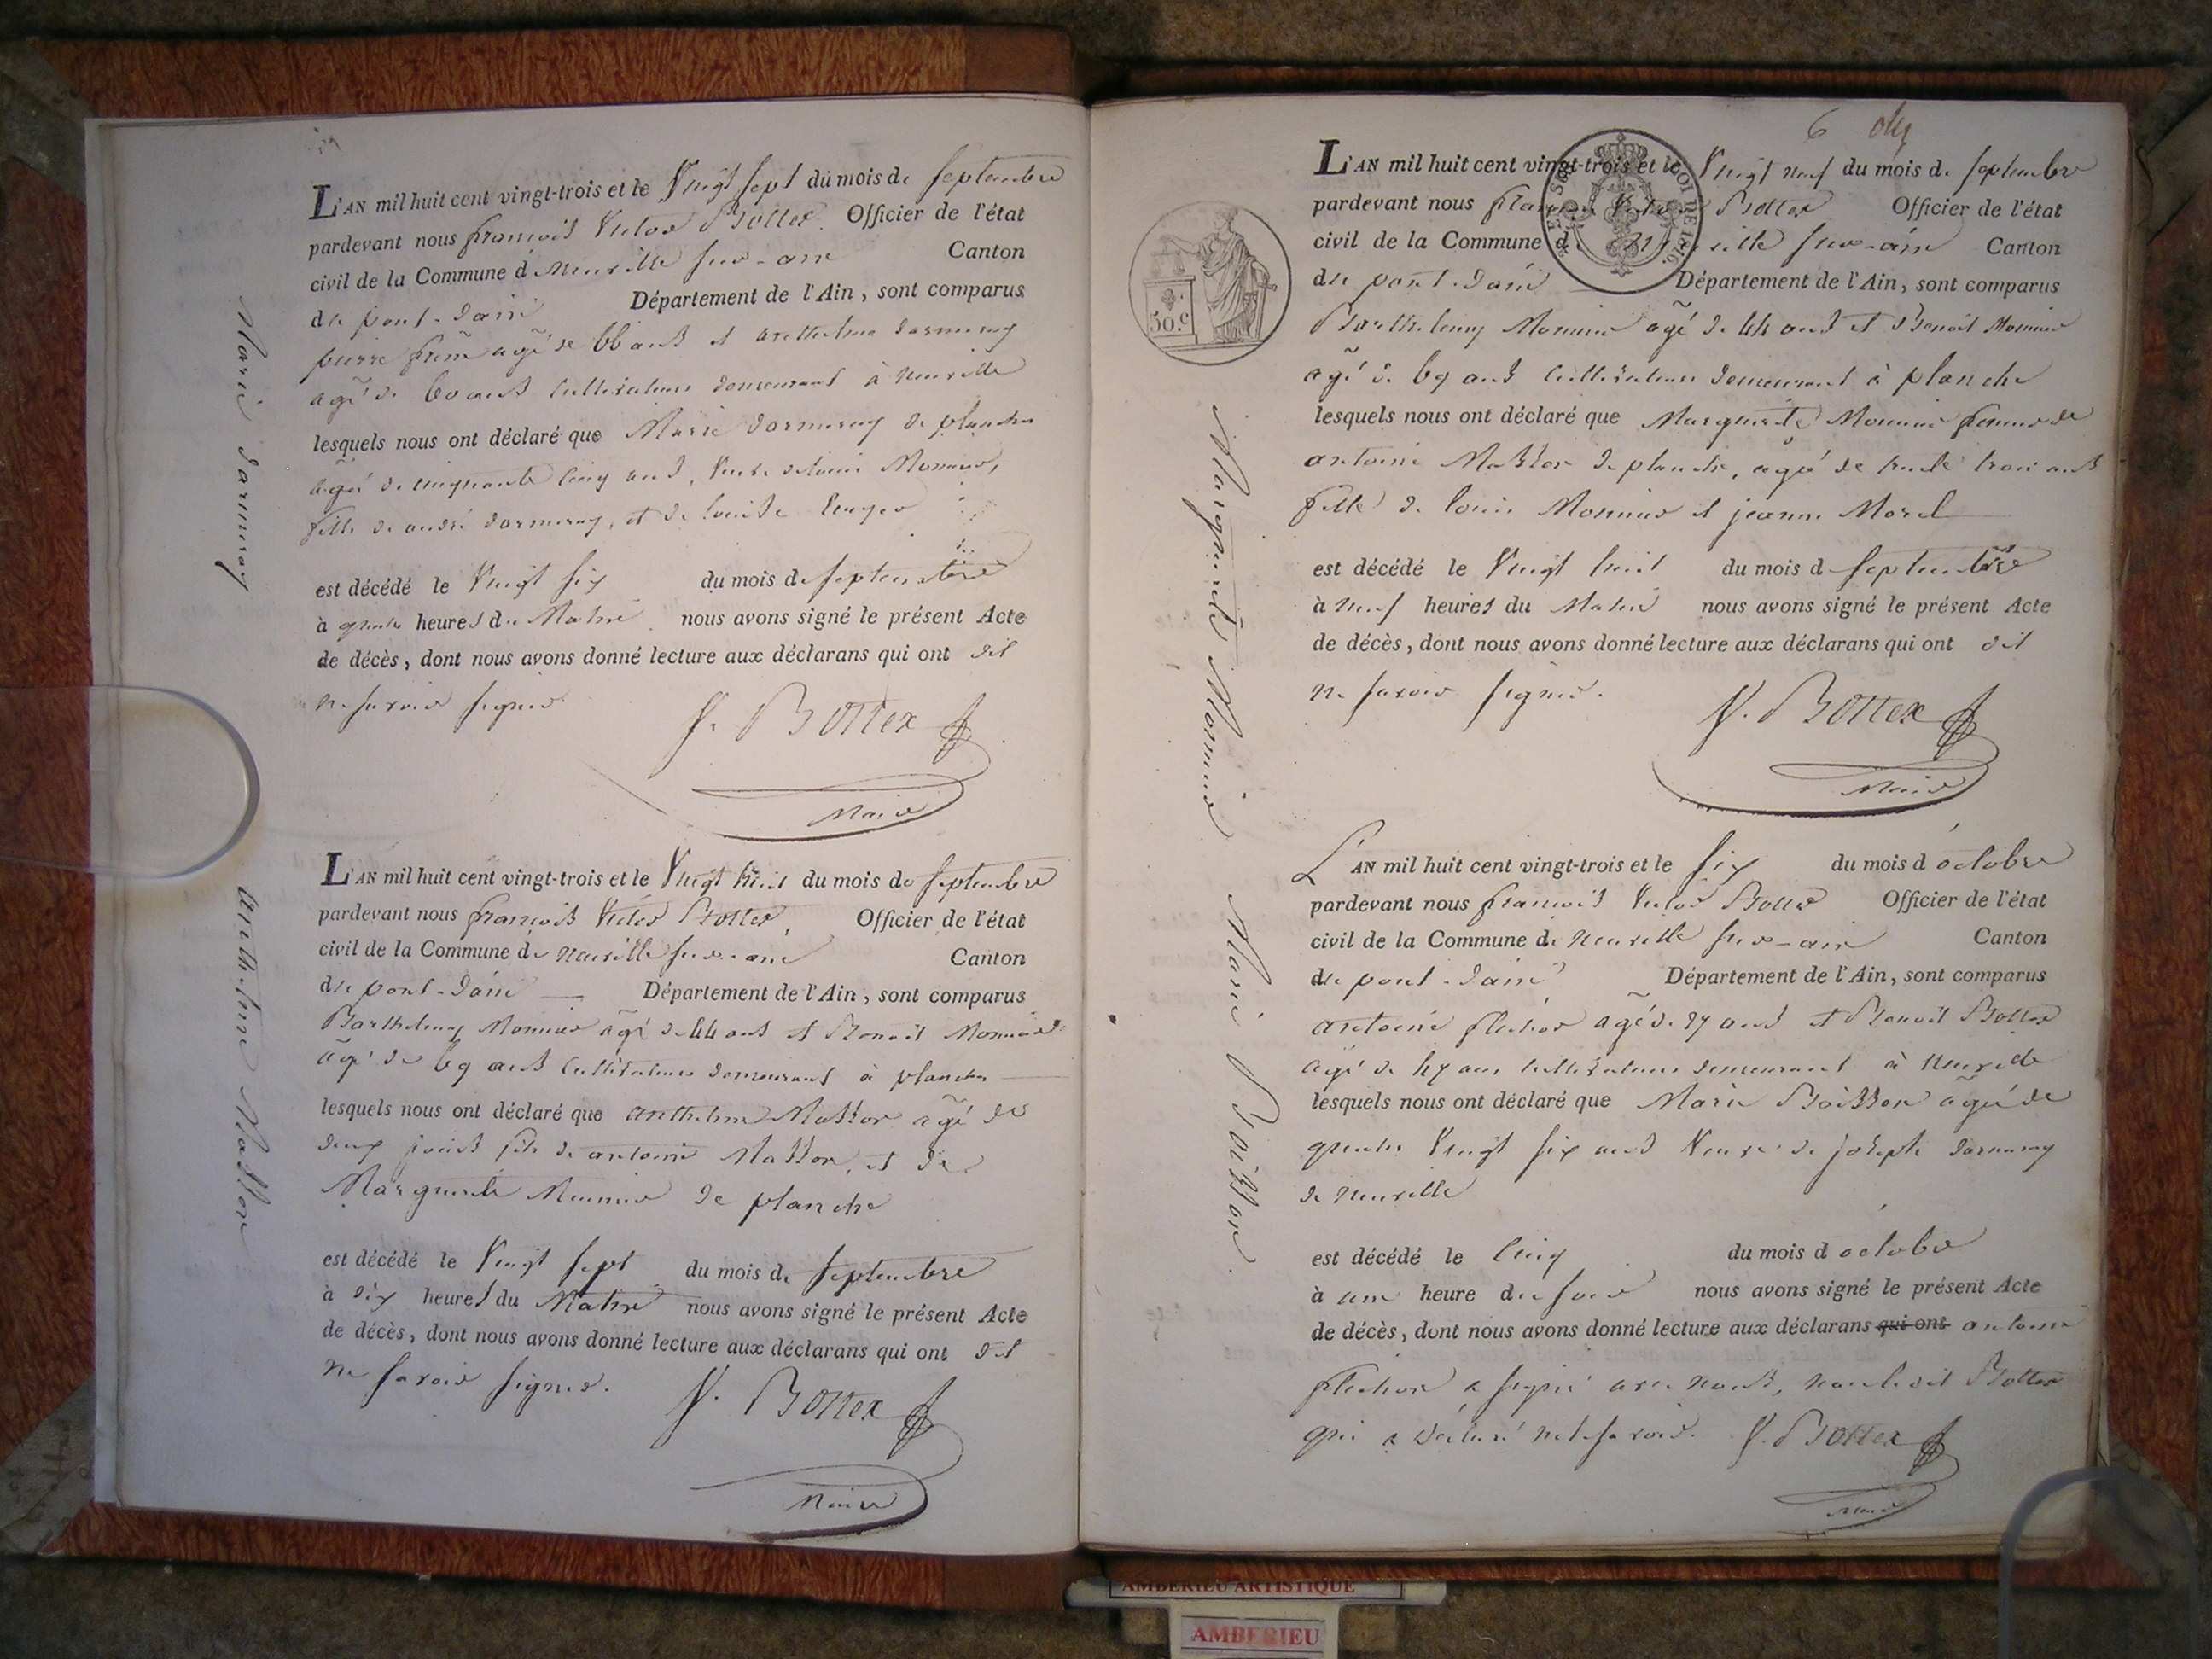 L'AN mil huit cent vingt-trois et le Vingt sept du mois de septembre
pardevant nous françois Victor Bottex. Officier de l'état
civil de la Commune de neuville sur-ain Canton
de pont-dain Département de l'Ain, sont comparus
pierre agé de 66 ans et anthelme darmeray
agé de 60 ans cultivateurs demeurant à neuville
lesquels nous ont déclaré que Marie darmeray de planche
agée de cinquante cinq ans, Veuve de louis Monnier,
fille de andré darmeray, et de louise
est décédé le Vingt six du mois de septembre
à quatre heures du Matin nous avons signé le présent Acte
de décès, dont nous avons donné lecture aux déclarans qui ont dit
ne savoir signer
V. Bottex
Maire
Marie darmeray
L'AN mil huit cent vingt-trois et le Vingt huit du mois de septembre
pardevant nous françois Victor Bottex, Officier de l'état
civil de la Commune de neuville sur-ain Canton
de pont-dain Département de l'Ain, sont comparus
Barthelemy Monnier agé de 44 ans et Benoit Monnier
agé de 69 ans cultivateurs demeurant à planche
lesquels nous ont déclaré que anthelme Masson agé de
deux jours fils de antoine Masson, et de
Marguerite Monnier de planche
est décédé le Vingt sept du mois de septembre
à dix heures du Matin nous avons signé le présent Acte
de décès, dont nous avons donné lecture aux déclarans qui ont dit
ne savoir signer.
V. Bottex
Maire
anthelme Masson
6
L'AN mil huit cent vingt-trois et le Vingt neuf du mois de septembre
pardevant nous françois Victor Bottex Officier de l'état
civil de la Commune de neuville sur-ain Canton
de pont-dain Département de l'Ain, sont comparus
Barthelemy Monnier agé de 44 ans et Benoit Monnier
agé de 69 ans cultivateurs demeurant à planche
lesquels nous ont déclaré que Marguerite Monnier femme de
antoine Masson de planche, agée de trente trois ans
fille de louis Monnier et jeanne Morel
est décédé le Vingt huit du mois de septembre
à neuf heures du Matin nous avons signé le présent Acte
de décès, dont nous avons donné lecture aux déclarans qui ont dit
ne savoir signer.
V. Bottex
Maire
50.c
Marguerite Monnier
L'AN mil huit cent vingt-trois et le six du mois d'octobre
pardevant nous françois Victor Bottex Officier de l'état
civil de la Commune de neuville sur-ain Canton
de pont-dain Département de l'Ain, sont comparus
antoine agé de 27 ans et Benoit Bottex
agé de 47 ans cultivateurs demeurant à neuville
lesquels nous ont déclaré que Marie Boisson agée de
quatre Vingt six ans Veuve de joseph darmeray
de neuville
est décédé le cinq du mois d'octobre
à une heure du soir nous avons signé le présent Acte
de décès, dont nous avons donné lecture aux déclarans qui ont antoine
a signé avec nous, non ledit Bottex
qui a déclaré ne le savoir. V. Bottex
Maire
Marie Boisson
AMBERIEU ARTISTIQUE
AMBERIEU